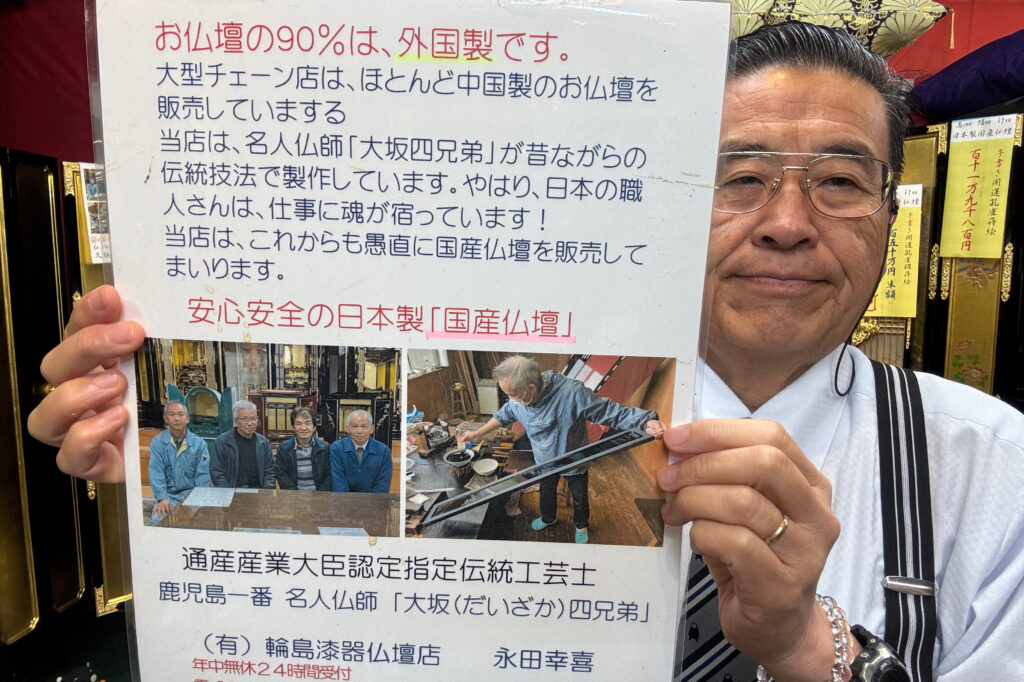 お仏壇の90％は、外国製です。
大型チェーン店は、ほとんど中国製のお仏壇を
販売していますする
当店は、名人仏師「大坂四兄弟」が昔ながらの
伝統技法で製作しています。やはり、日本の職
人さんは、仕事に魂が宿っています！
当店は、これからも愚直に国産仏壇を販売して
まいります。
安心安全の日本製「国産仏壇」
通産産業大臣認定指定伝統工芸士
鹿児島一番 名人仏師 「大坂（だいざか）四兄弟」
（有）輪島漆器仏壇店 永田幸喜
年中無休２４時間受付
日本製国産仏壇
手書き開運孔雀蒔絵
百十一万九千八百円